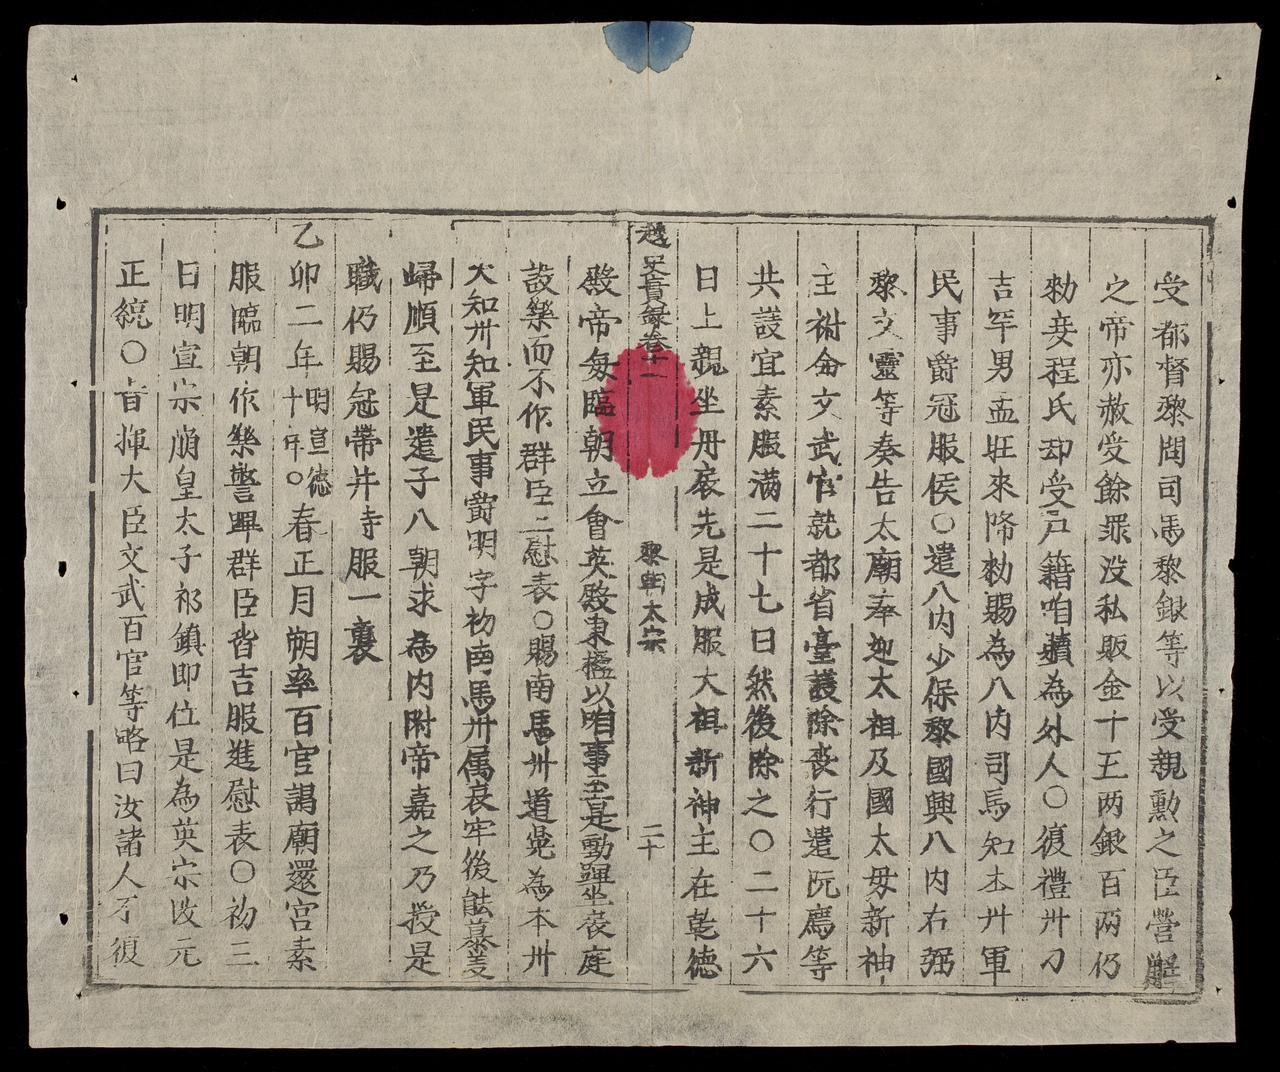 受都督黎問司馬黎銀等以受親勲之臣營解
之帝亦赦受餘罪没私販金十五两銀百兩仍
勑妾程氏却受戸籍咱贖為外人〇復禮卅刀
吉罕男孟旺來降勑賜為入内司馬知本卅軍
民事爵冠服侯〇遣入内少保黎國興入内右弼
黎文靈等奏告太廟奉迎太祖及國太毋新神
主祔命文武官就都省臺議除丧行遣阮廌等
共議宜素服滿二十七日然後除之〇二十六
日上親坐丹扆先是成服太祖新神主在乾德
越史實録卷十一
黎朝太宗
二十
殿帝每臨朝立會英殿東楹以咱事至是動蹕坐丧庭
設樂而不作群臣上慰表〇賜南馬卅道㒕為本卅
大知卅知軍民事爵明字初南馬卅属哀牢後能慕义
歸順至是遣子入朝求為内附帝嘉之乃授是
職仍賜冠帶并寺服一襲
乙卯二年明宣德十年〇春正月朔率百官謁廟還宮素
服臨朝作樂警蹕群臣皆吉服進慰表〇初三
日明宣宗崩皇太子祁鎮即位是為英宗改元
正統〇旨揮大臣文武百官等略曰汝諸人不復